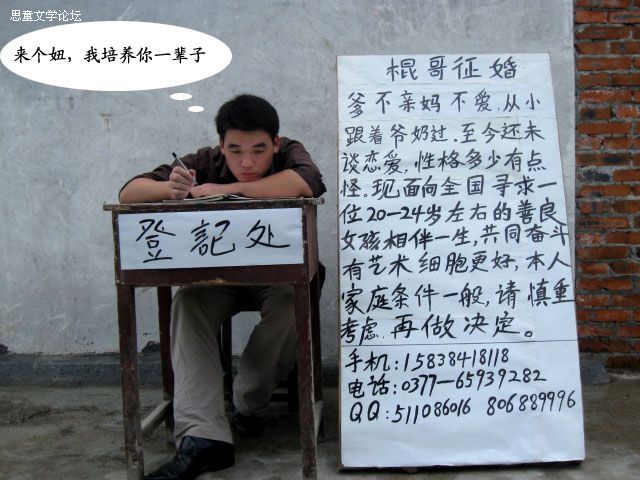 思童文学论坛
来个妞，我培养你一辈子
登記处
棍哥征婚
爹不亲妈不爱.从小
跟着爷奶过.至今还未
谈恋爱,性格多少有点
怪.现面向全国寻求一
位20-24岁左右的善良
女孩相伴一生,共同奋斗
有艺术细胞更好,本人
家庭条件一般,请慎重
考虑.再做决定。
手机:15838418118
电话:0377-65939282
QQ:511086016 806889996